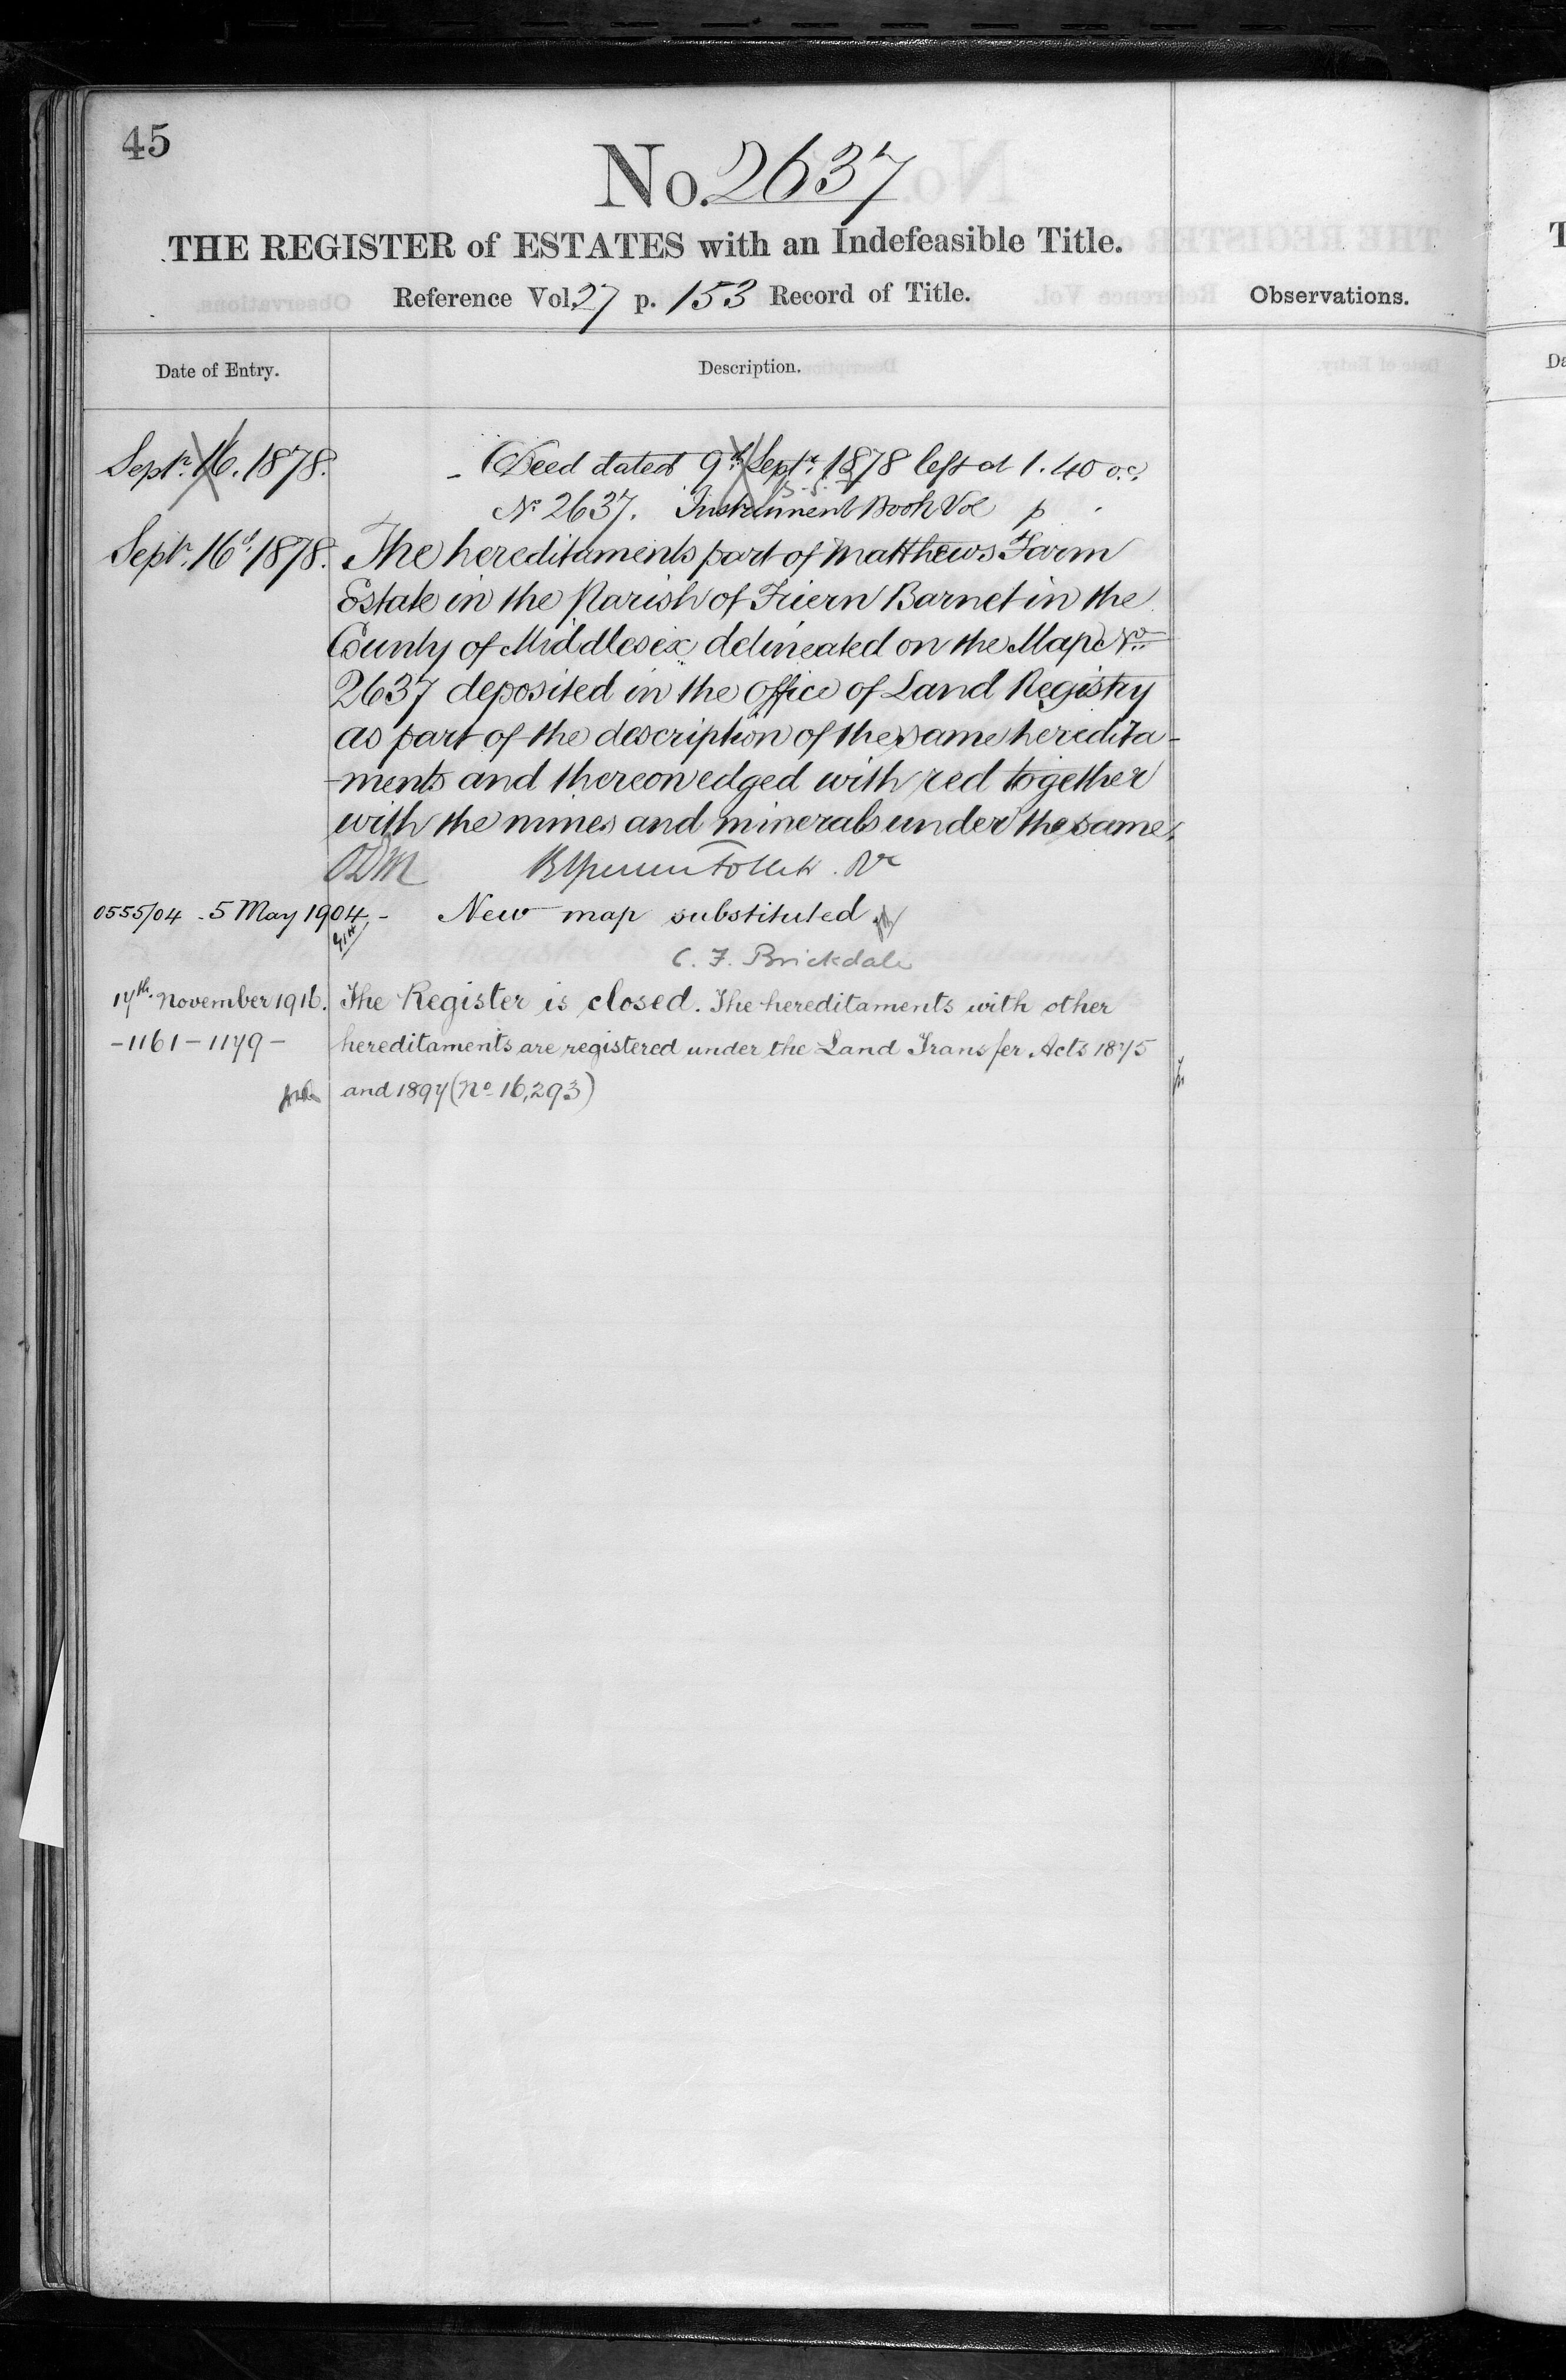 45
No. 2637
THE REGISTER of ESTATES with an Indefeasible Title.
Reference Vol. 27 p. 153 Record of Title.
Observations.
Date of Entry.
Description.
Septr. 16. 1878.
Deed dated 9th Septr. 1878 left at 1.40 o.c.
No 2637. Instrument Book Vol p
Septr. 16th 1878. The hereditaments part of Matthews Farm
Estate in the Parish of Friern Barnet in the
County of Middlesex delineated on the Map No
2637 deposited in the office of Land Registry
as part of the description of the same heredita-
-ments and thereon edged with red together
with the mines and minerals under the same.
0555/04 - 5 May 1904 - New map substituted
C. F. Brickdale
17th November 1916. The Register is closed. The hereditaments with other
-1161-1179- hereditaments are registered under the Land Transfer Acts 1875
and 1897 (No 16,293)